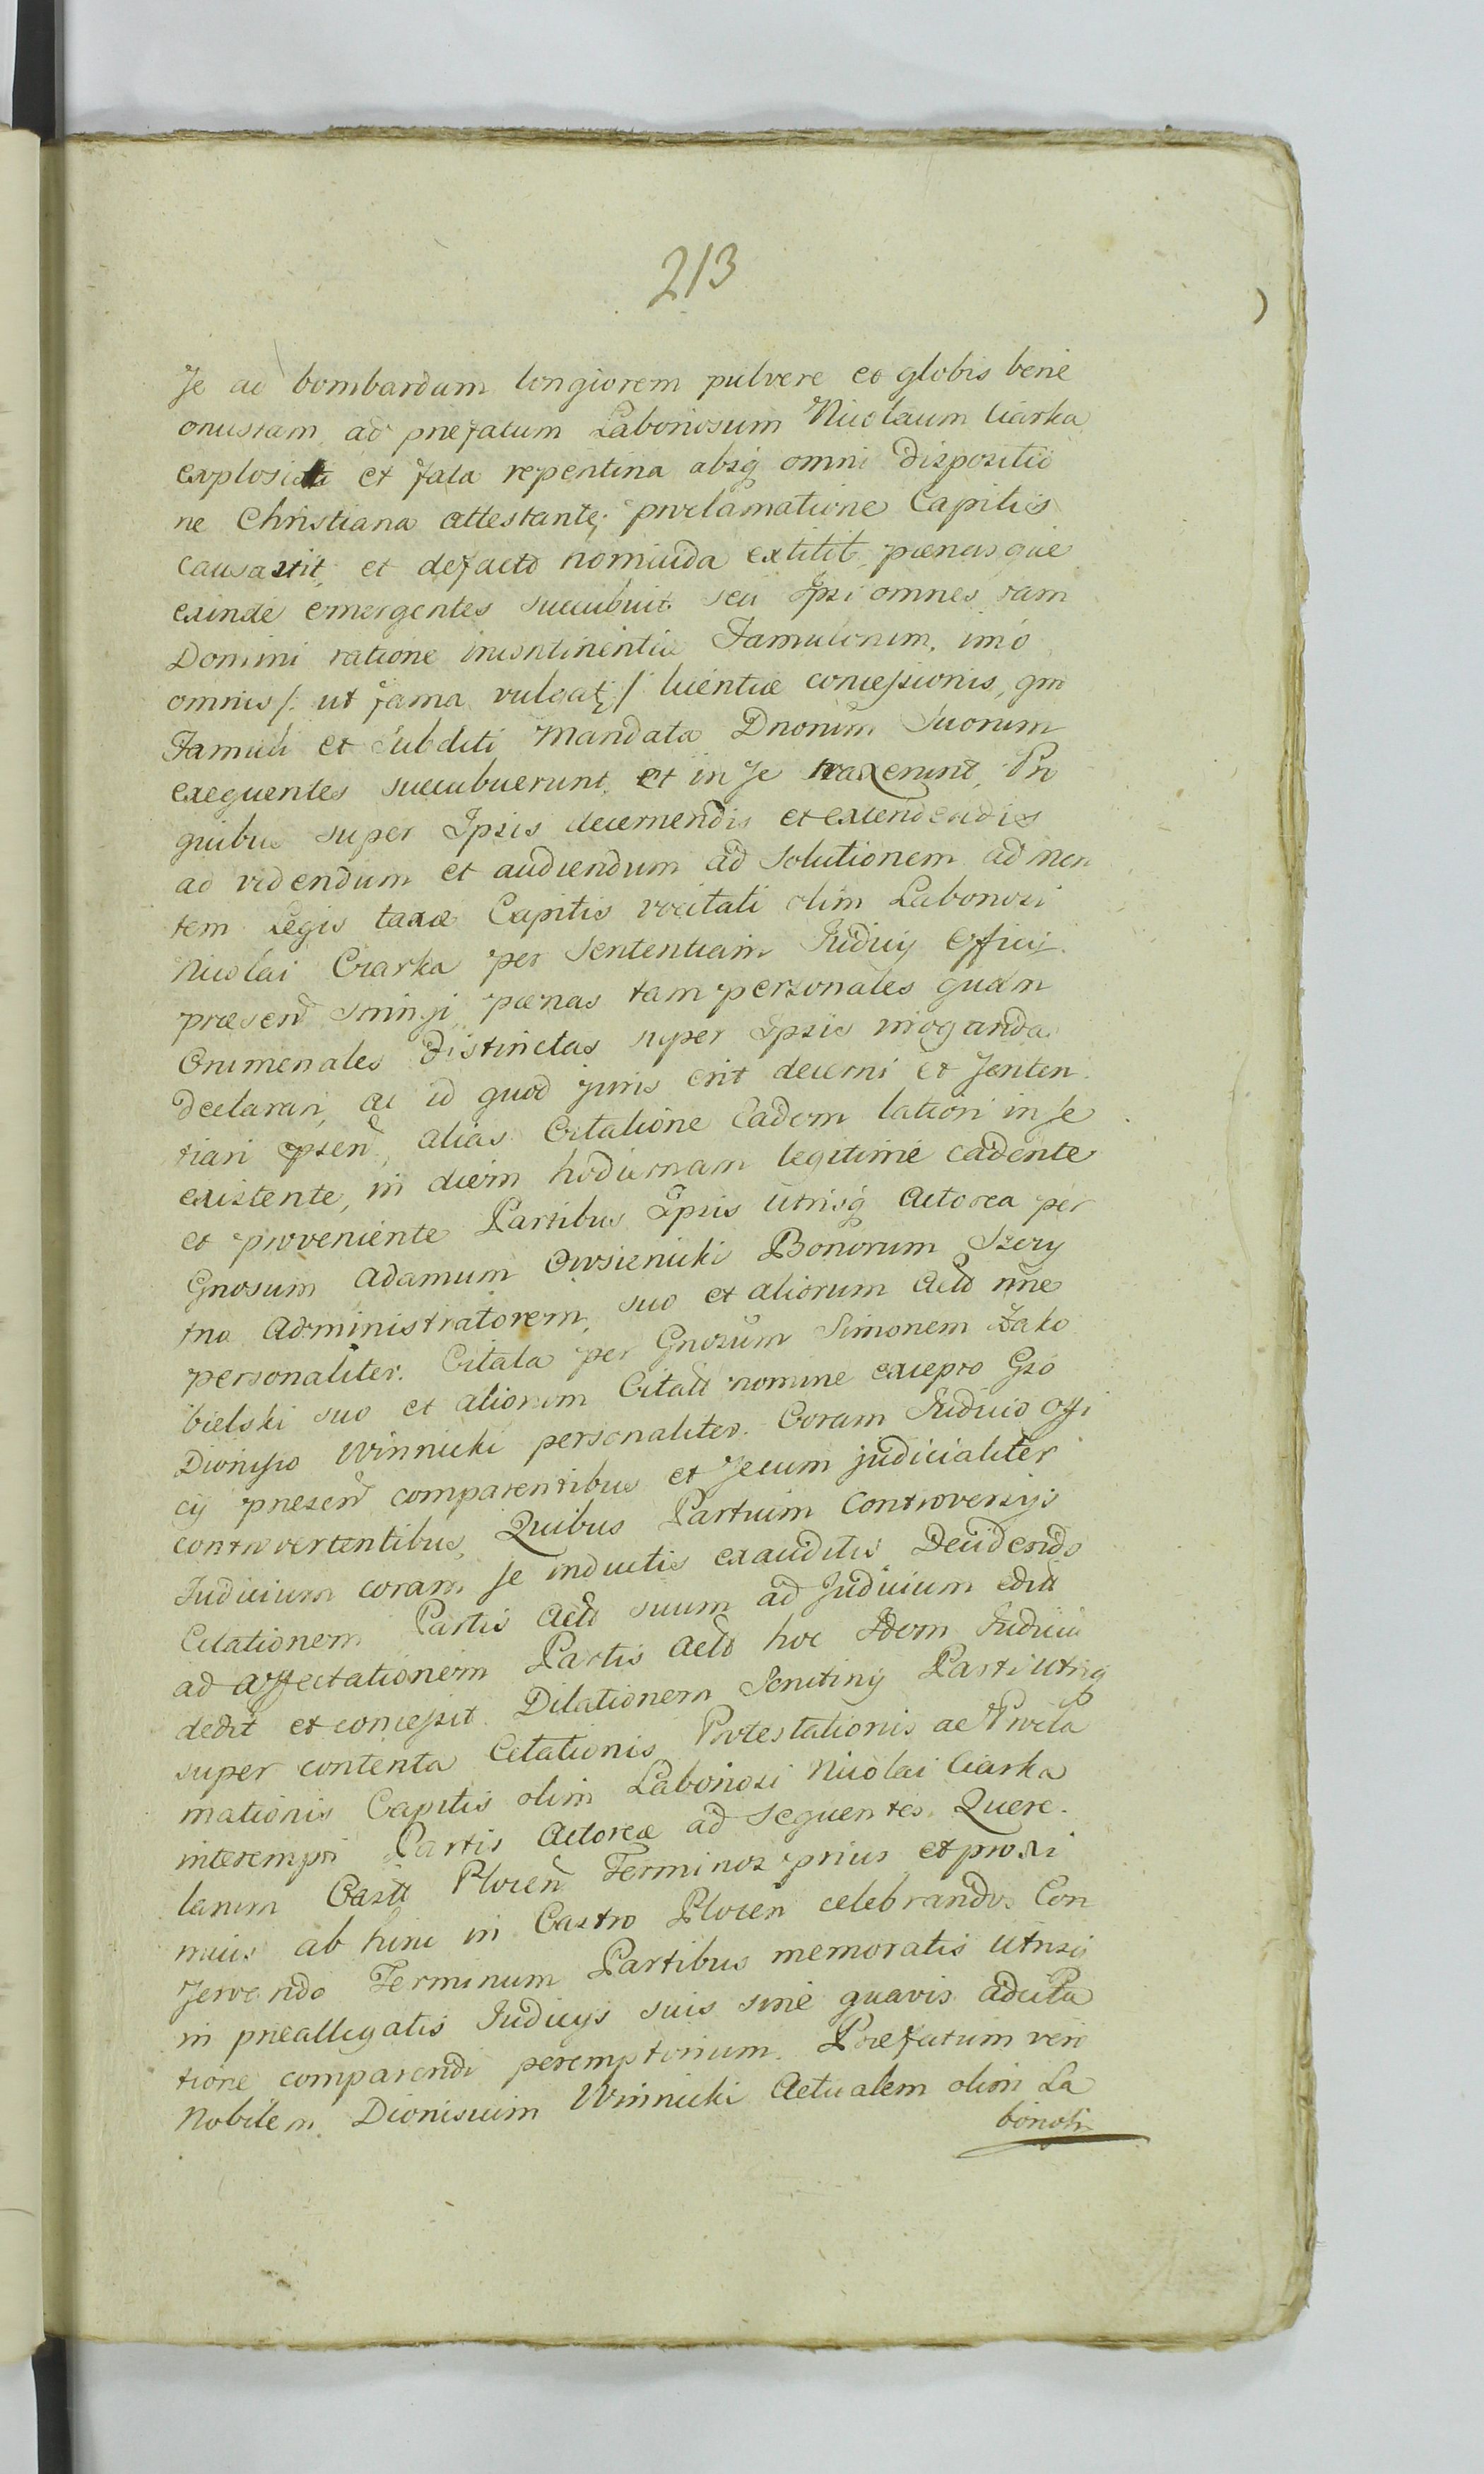 213
se ad bombardam longiorem pulvere et globis bene
onustam, ad præfatum Laboriosum Nicolaum Ciarka
explosit et fata repentina absq̃ omni dispositio
ne Christiana attestante proclamatione Capitis
causavit, et defacto homicida extitit, pænasque
exinde emergentes succubuit seu Ipsi omnes tam
Domini ratione incontinentiæ Famulorum, imo
omnis /: ut fama vulgat :/ licentiæ concessionis, qm
Famuli et Subditi Mandata Dnorum Suorum
exequentes succubuerunt, et in se traxerunt, Pro
quibus super Ipsis decernendis et extendendis
ad videndum et audiendum ad solutionem ad men
tem Legis taxæ Capitis vocitati olim Laboriosi
Nicolai Ciarka per Sententiam Judicij Officij
præsen̄ stringi, pænas tam personales quam
Criminales distinctas super Ipsis irroganda
declarari, ac id quod juris erit decerni et senten
tiari psen̄, alias Citatione eadem latiori in se
existente, in diem hodiernam legitime cadente
et proveniente Partibus Ipsis utrisq̃ Actorea per
Gnosum Adamum Owsienicki Bonorum Szczy
tno Administratorem, suo et aliorum Act̃o nne
personaliter. Citata per Gnosum Simonem Zako
bielski suo et aliorum Citatt nomine excepto Gso
Dionisio Winnicki personaliter. Coram Judicio offi
cij præsen̄ comparentibus et secum judicialiter
controvertentibus, Quibus Partium Controversijs
Judicium coram se inductis exauditis Decidendo
Citationem Partis Act̃o suum ad Judicium edit
ad affectationem Partis Act̃o hoc Idem Judiciu
dedit et concessit Dilationem Scrutinij Parti utriq
super contenta Citationis Protestationis ac Procla
mationis Capitis olim Laboriosi Nicolai Ciarka
interempti Partis Actoreæ ad sequentes Quere
larum Castt Plocen̄ Terminos prius et proxi
mius ab hinc in Castro Plocen̄ celebrandos Con
servando Terminum Partibus memoratis utrisq̃
in præallegatis Judicijs suis sine quavis adcita
tione comparendi peremptorium. Præfatum vero
Nobilem Dionisium Winnicki Actualem olim La
boriosi